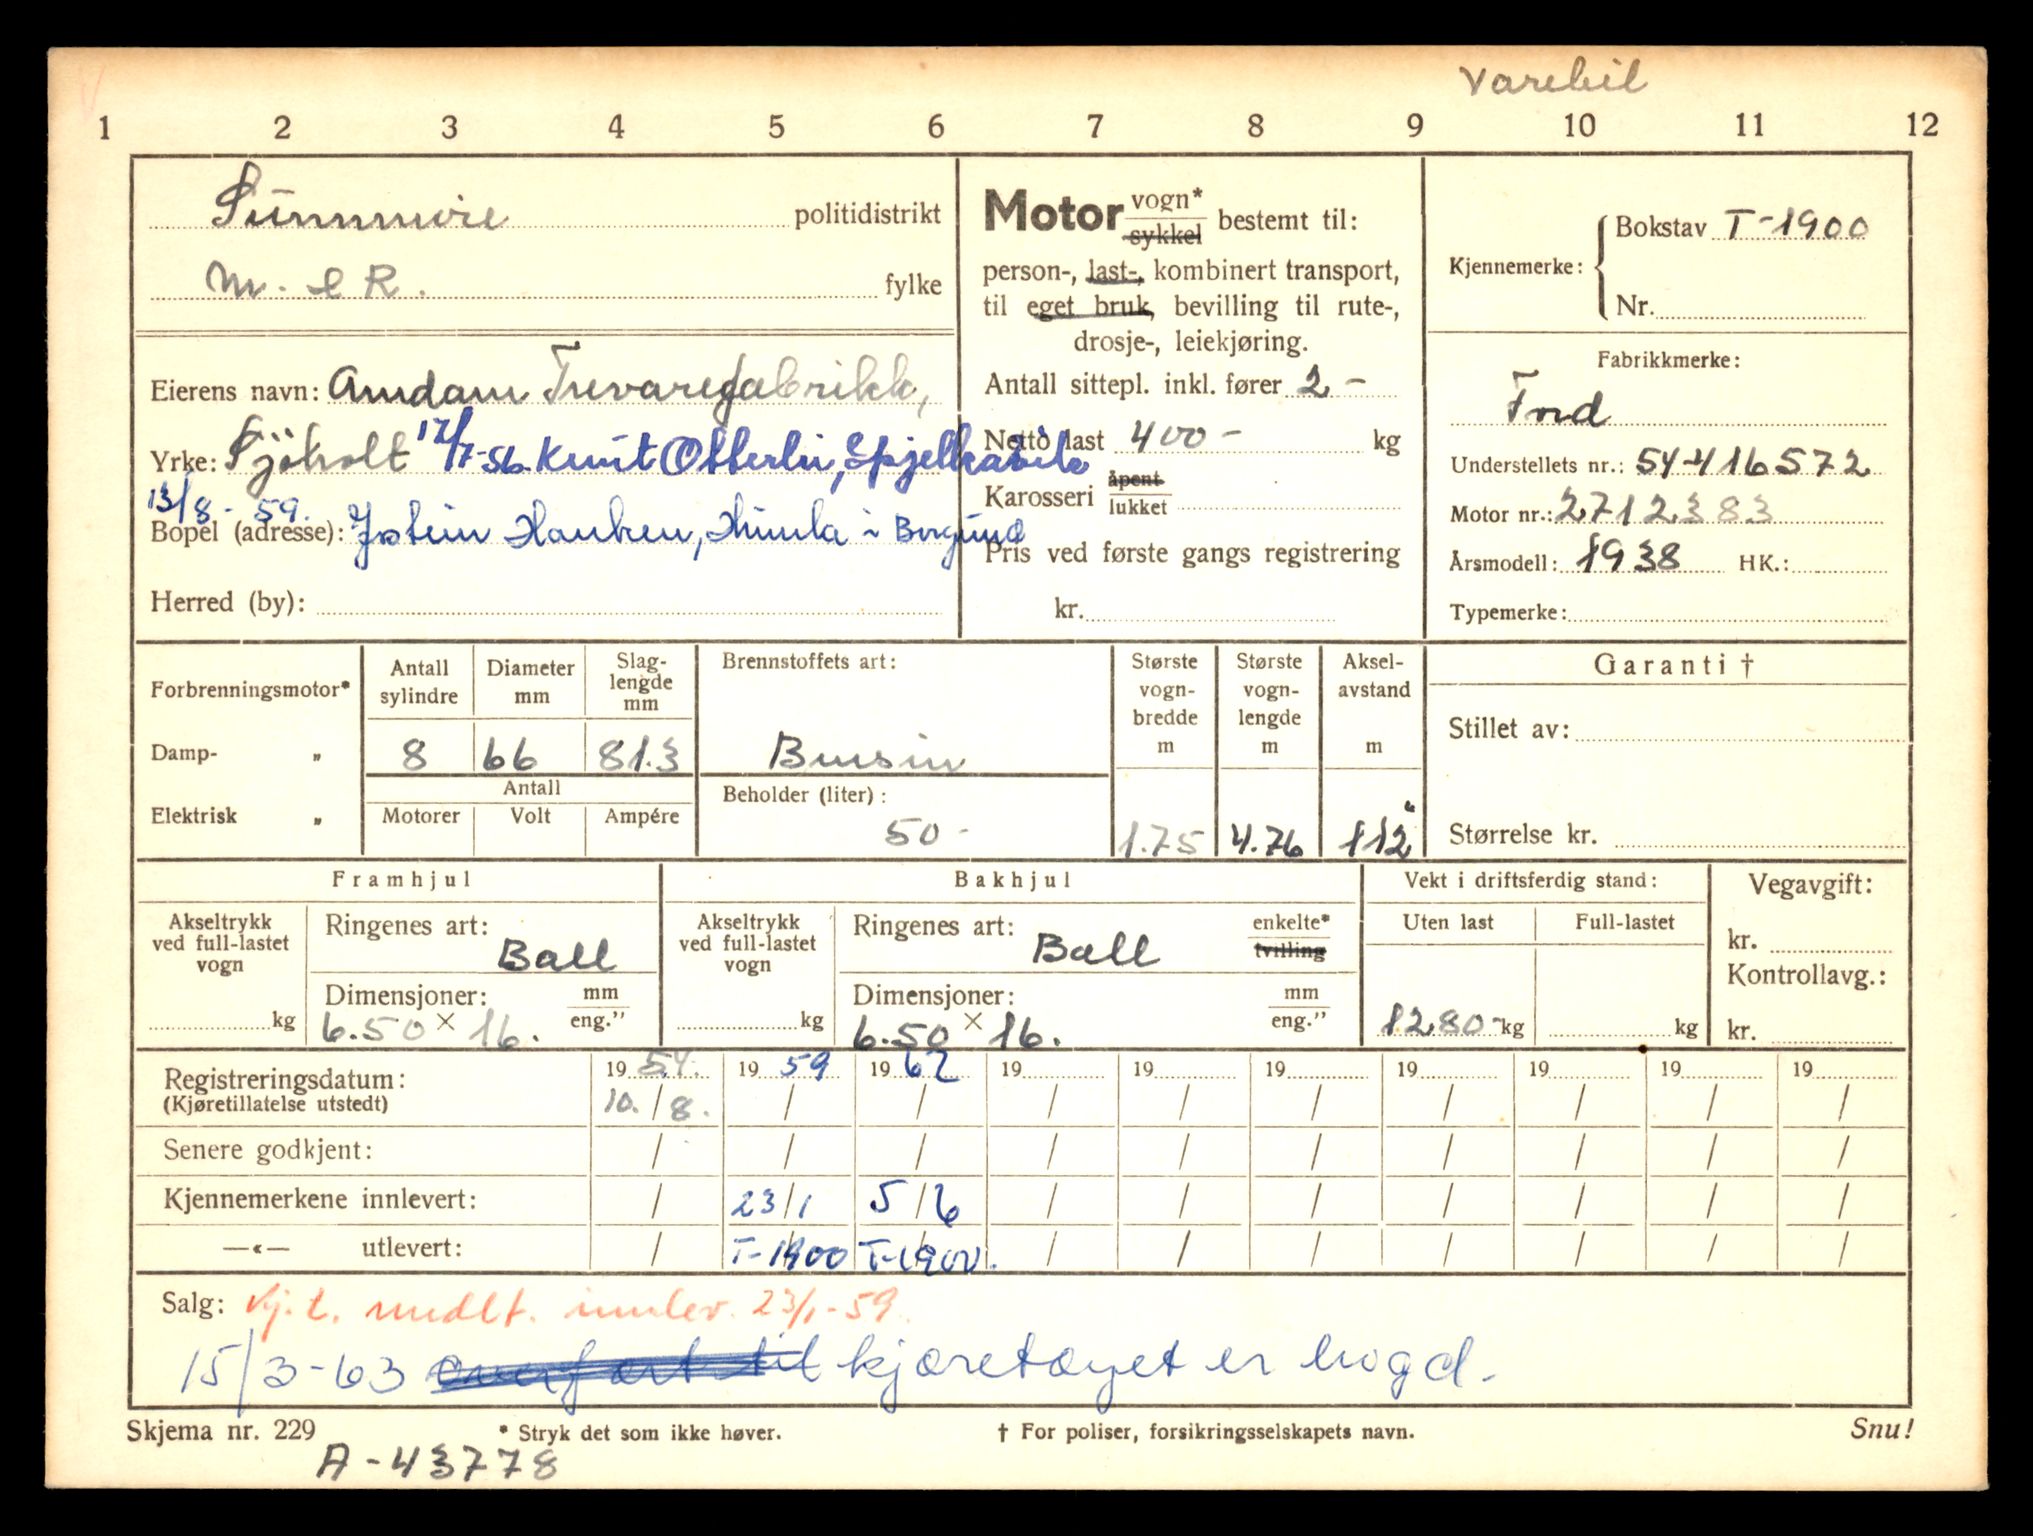 Varebil
1 2 3 4 5 6 7 8 9 10 11 12
Sunnmøre politidistrikt
M. & R. fylke
Eierens navn: Amdam Trevarefabrikk,
Yrke: Sjøholt 17/7-56. Knut Otterlei, Spjelkavik
13/8-59.
Bopel (adresse): Jostein Hauken, Humla i Borgund
Herred (by):
Motor vogn* sykkel bestemt til:
person-, last-, kombinert transport,
til eget bruk, bevilling til rute-,
drosje-, leiekjøring.
Antall sittepl. inkl. fører 2 -
Netto last 400 - kg
Karosseri åpent lukket
Pris ved første gangs registrering
kr.
Kjennemerke: Bokstav T-1900
Nr.
Fabrikkmerke:
Ford
Understellets nr.: 54-416572
Motor nr.: 2712383
Årsmodell: 1938 HK.:
Typemerke:
Forbrenningsmotor*
Damp- „
Elektrisk „
Antall sylindre Diameter mm Slag-lengde mm
8 66 81.3
Antall
Motorer Volt Ampére
Brennstoffets art:
Bensin
Beholder (liter):
50 -
Største vogn-bredde m
1.75
Største vogn-lengde m
4.76
Aksel-avstand m
112"
Garanti †
Stillet av:
Størrelse kr.
Framhjul
Akseltrykk ved full-lastet vogn
kg
Ringenes art: Ball
Dimensjoner: mm eng."
6.50 × 16.
Bakhjul
Akseltrykk ved full-lastet vogn
kg
Ringenes art: Ball enkelte* tvilling
Dimensjoner: mm eng."
6.50 × 16.
Vekt i driftsferdig stand:
Uten last Full-lastet
1280- kg kg
Vegavgift:
kr.
Kontrollavg.:
kr.
Registreringsdatum: 19 54. 19 59 19 62 19 19 19 19 19 19 19
(Kjøretillatelse utstedt) 10./8. / / / / / / / / /
Senere godkjent: / / / / / / / / / /
Kjennemerkene innlevert: / 23/1 5/6 / / / / / / /
—«— utlevert: / T-1900 T-1900. / / / / / / /
Salg: Kj.t. midlt. innlev. 23/1-59.
15/3-63 overført til kjøretøyet er hogd.
Skjema nr. 229 * Stryk det som ikke høver. † For poliser, forsikringsselskapets navn. Snu!
A-43778